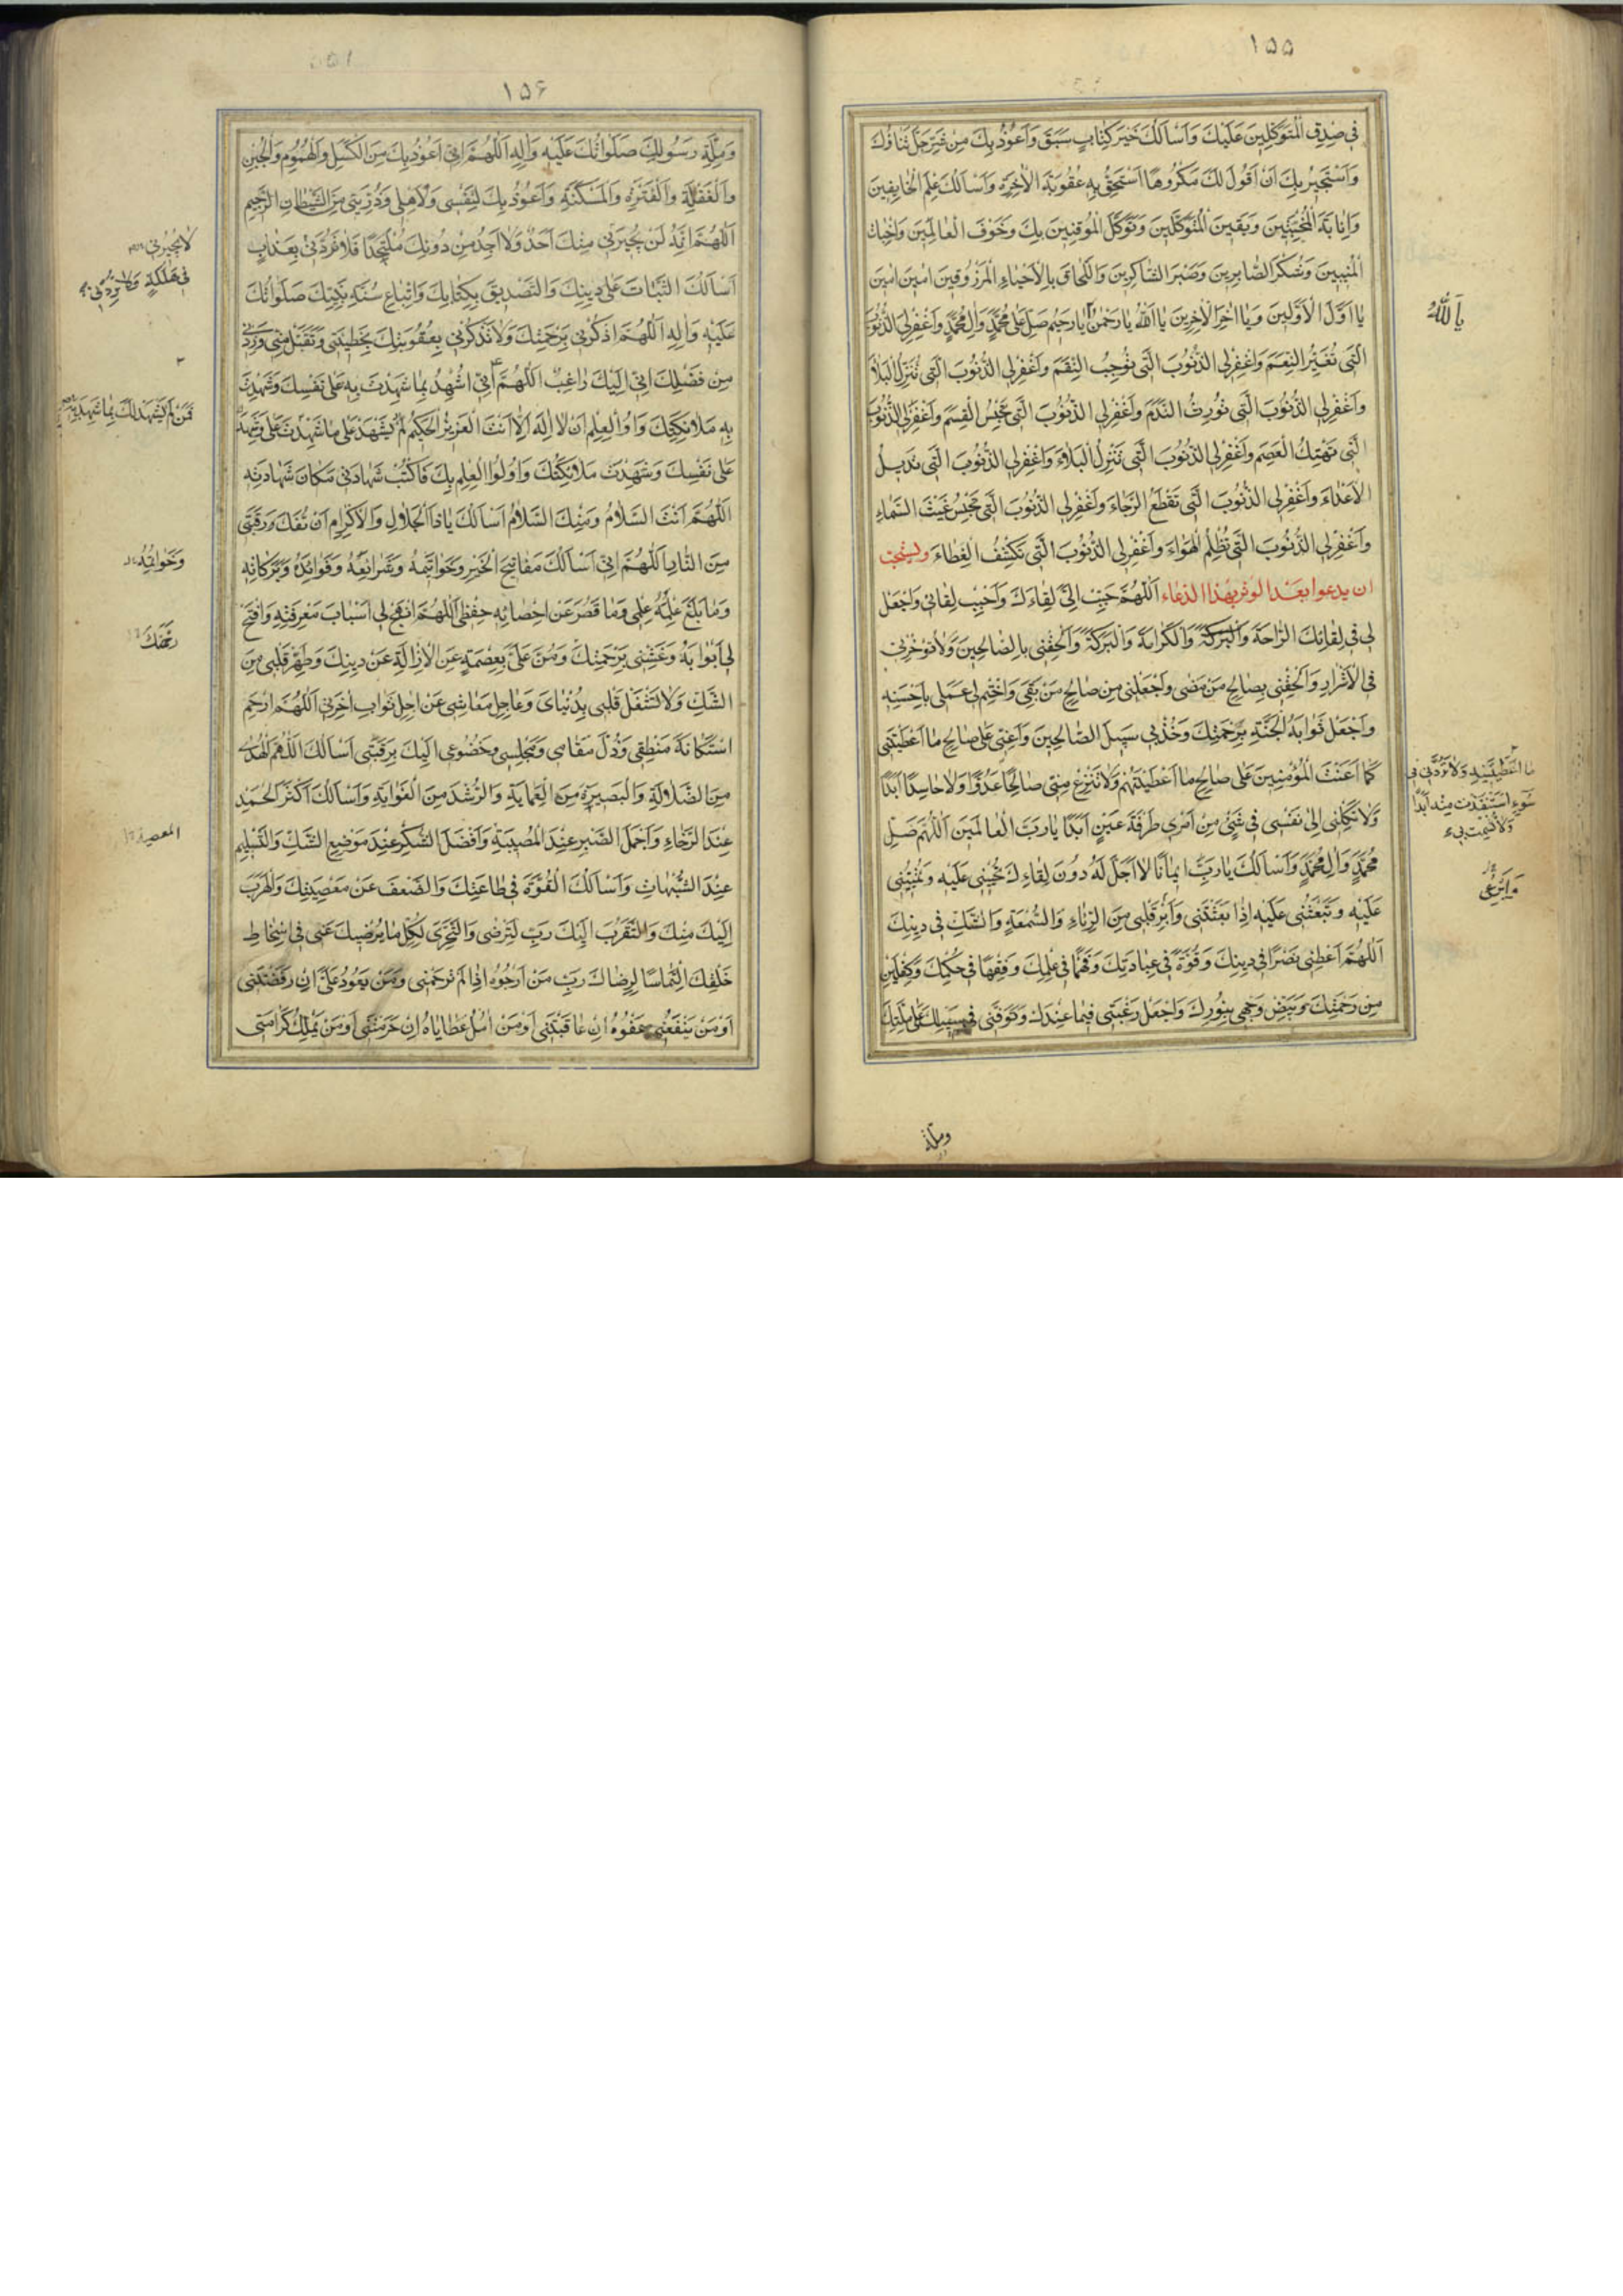 ١٥٥
في صِدْقِ الْمُتَوَكِّلِينَ عَلَيْكَ وَاَسْاَلُكَ خَيْرَ كِتٰابٍ سَبَقَ وَاَعُوذُ بِكَ مِنْ شَرِّ جَلَّ ثَنٰاؤُكَ
وَاَسْتَجِيرُ بِكَ اَنْ اَقُولَ لَكَ مَكْرُوهًا اَسْتَحِقُّ بِهِ عُقُوبَةَ الْاٰخِرَةِ وَاَسْاَلُكَ عِلْمَ الْخٰايِفِينَ
وَاِنٰابَةَ الْمُخْبِتِينَ وَيَقِينَ الْمُتَوَكِّلِينَ وَتَوَكُّلَ الْمُوقِنِينَ بِكَ وَخَوْفَ الْعٰالِمِينَ وَاِخْبٰاتَ
الْمُنِيبِينَ وَشُكْرَ الصّٰابِرِينَ وَصَبْرَ الشّٰاكِرِينَ وَاللَّحٰاقَ بِالْاَحْيٰاءِ الْمَرْزُوقِينَ امِينَ امِينَ
يٰا اَوَّلَ الْاَوَّلِينَ وَيٰا اٰخِرَ الْاٰخِرِينَ يٰا اَللّٰهُ يٰا رَحْمٰنُ يٰا رَحِيمُ صَلِّ عَلٰى مُحَمَّدٍ وَاٰلِ مُحَمَّدٍ وَاغْفِرْ لِيَ الذُّنُوبَ
يٰا اَللّٰهُ
الَّتِي تُغَيِّرُ النِّعَمَ وَاغْفِرْ لِيَ الذُّنُوبَ الَّتِي تُوجِبُ النِّقَمَ وَاغْفِرْ لِيَ الذُّنُوبَ الَّتِي تُنْزِلُ الْبَلٰاءَ
وَاغْفِرْ لِيَ الذُّنُوبَ الَّتِي تُورِثُ النَّدَمَ وَاغْفِرْ لِيَ الذُّنُوبَ الَّتِي تَحْبِسُ الْقِسَمَ وَاغْفِرْ لِيَ الذُّنُوبَ
الَّتِي تَهْتِكُ الْعِصَمَ وَاغْفِرْ لِيَ الذُّنُوبَ الَّتِي تُنْزِلُ الْبَلٰاءَ وَاغْفِرْ لِيَ الذُّنُوبَ الَّتِي تُدِيلُ
الْاَعْدٰاءَ وَاغْفِرْ لِيَ الذُّنُوبَ الَّتِي تَقْطَعُ الرَّجٰاءَ وَاغْفِرْ لِيَ الذُّنُوبَ الَّتِي تَحْبِسُ غَيْثَ السَّمٰاءِ
وَاغْفِرْ لِيَ الذُّنُوبَ الَّتِي تُظْلِمُ الْهَوٰاءَ وَاغْفِرْ لِيَ الذُّنُوبَ الَّتِي تَكْشِفُ الْغِطٰاءَ وليستحبّ
ان يدعوا بعد الوتر بهذا الدعاء اَللّٰهُمَّ حَبِّبْ اِلَيَّ لِقٰاءَكَ وَاَحْبِبْ لِقٰائِي وَاجْعَلْ
لِي فِي لِقٰائِكَ الرّٰاحَةَ وَالْبَرَكَةَ وَالْكَرٰامَةَ وَالْبَرَكَةَ وَاَلْحِقْنِي بِالصّٰالِحِينَ وَلٰا تُؤَخِّرْنِي
فِي الْاَشْرٰارِ وَاَلْحِقْنِي بِصٰالِحِ مَنْ مَضٰى وَاجْعَلْنِي مِنْ صٰالِحِ مَنْ بَقِيَ وَاخْتِمْ لِي عَمَلِي بِاَحْسَنِهِ
وَاجْعَلْ ثَوٰابَهُ الْجَنَّةَ بِرَحْمَتِكَ وَخُذْ بِي سَبِيلَ الصّٰالِحِينَ وَاَعِنِّي عَلٰى صٰالِحِ مٰا اَعْطَيْتَنِي
مٰا اَعْطَيْتَنِيهِ وَلٰا تَرُدَّنِي فِي
سُوءٍ اسْتَنْقَذْتَ مِنْهُ اَبَدًا
وَلٰا تُشْمِتْ بِي
كَمٰا اَعَنْتَ الْمُؤْمِنِينَ عَلٰى صٰالِحِ مٰا اَعْطَيْتَهُمْ وَلٰا تَنْزِعْ مِنِّي صٰالِحًا عَدُوًّا وَلٰا حٰاسِدًا اَبَدًا
وَلٰا تَكِلْنِي اِلٰى نَفْسِي فِي شَيْءٍ مِنْ اَمْرِي طَرْفَةَ عَيْنٍ اَبَدًا يٰا رَبَّ الْعٰالَمِينَ اَللّٰهُمَّ صَلِّ
مُحَمَّدٍ وَاٰلِ مُحَمَّدٍ وَاَسْاَلُكَ يٰا رَبِّ اِيمٰانًا لٰا اَجَلَ لَهُ دُونَ لِقٰاءِكَ تُحْيِنِي عَلَيْهِ وَتُمِيتُنِي
عَلَيْهِ وَتَبْعَثُنِي عَلَيْهِ اِذٰا بَعَثْتَنِي وَاَبْرِ قَلْبِي مِنَ الرِّيٰاءِ وَالسُّمْعَةِ وَالشَّكِّ فِي دِينِكَ
اَللّٰهُمَّ اَعْطِنِي نَصْرًا فِي دِينِكَ وَقُوَّةً فِي عِبٰادَتِكَ وَفَهْمًا فِي عِلْمِكَ وَفِقْهًا فِي حُكْمِكَ وَكِفْلَيْنِ
مِنْ رَحْمَتِكَ وَبَيِّضْ وَجْهِي بِنُورِكَ وَاجْعَلْ رَغْبَتِي فِيمٰا عِنْدَكَ وَتَوَفَّنِي فِي سَبِيلِكَ عَلٰى مِلَّتِكَ
وملّة
١٥۶
وَمِلَّةِ رَسُولِكَ صَلَوٰاتُكَ عَلَيْهِ وَاٰلِهِ اَللّٰهُمَّ اِنِّي اَعُوذُ بِكَ مِنَ الْكَسَلِ وَالْهُمُومِ وَالْجُبْنِ
وَالْغَفْلَةِ وَالْفَتْرَةِ وَالْمَسْكَنَةِ وَاَعُوذُ بِكَ لِنَفْسِي وَلِاَهْلِي وَذُرِّيَّتِي مِنَ الشَّيْطٰانِ الرَّجِيمِ
اَللّٰهُمَّ اِنَّهُ لَنْ يُجِيرَنِي مِنْكَ اَحَدٌ وَلٰا اَجِدُ مِنْ دُونِكَ مُلْتَحَدًا فَلٰا تَرُدَّنِي بِعَذٰابٍ
لٰا يُجِيرُنِي
فِي هَلَكَةٍ وَلٰا تَرُدَّنِي
اَسْاَلُكَ الثَّبٰاتَ عَلٰى دِينِكَ وَالتَّصْدِيقَ بِكِتٰابِكَ وَاتِّبٰاعِ سُنَّةِ نَبِيِّكَ صَلَوٰاتُكَ
عَلَيْهِ وَاٰلِهِ اَللّٰهُمَّ اذْكُرْنِي بِرَحْمَتِكَ وَلٰا تَذْكُرْنِي بِعُقُوبَتِكَ بِخَطِيئَتِي وَتَقَبَّلْ مِنِّي وَزِدْنِي
مِنْ فَضْلِكَ اِنِّي اِلَيْكَ رٰاغِبٌ اَللّٰهُمَّ اِنِّي اُشْهِدُ بِمٰا شَهِدْتَ بِهِ عَلٰى نَفْسِكَ وَشَهِدَتْ
بِهِ مَلٰائِكَتُكَ وَاُولُو الْعِلْمِ اَنْ لٰا اِلٰهَ اِلّٰا اَنْتَ الْعَزِيزُ الْحَكِيمُ لَمْ يَشْهَدْ عَلٰى مٰا شَهِدْتَ
فَمَنْ لَمْ يَشْهَدْ لَكَ بِمٰا شَهِدْتَ بِهِ
عَلٰى نَفْسِكَ وَشَهِدَتْ مَلٰائِكَتُكَ وَاُولُوا الْعِلْمِ بِكَ فَاكْتُبْ شَهٰادَتِي مَكٰانَ شَهٰادَتِهِ
اَللّٰهُمَّ اَنْتَ السَّلٰامُ وَمِنْكَ السَّلٰامُ اَسْاَلُكَ يٰا ذَا الْجَلٰالِ وَالْاِكْرٰامِ اَنْ تَفُكَّ رَقَبَتِي
مِنَ النّٰارِ اَللّٰهُمَّ اِنِّي اَسْاَلُكَ مَفٰاتِيحَ الْخَيْرِ وَخَوٰاتِمَهُ وَشَرٰائِعَهُ وَفَوٰائِدَهُ وَبَرَكٰاتِهِ
وَخَوٰاتِمَهُ
وَمٰا بَلَغَ عِلْمَهُ عِلْمِي وَمٰا قَصُرَ عَنْ اِحْصٰائِهِ حِفْظِي اَللّٰهُمَّ انْهَجْ لِي اَسْبٰابَ مَعْرِفَتِهِ وَافْتَحْ
لِي اَبْوٰابَهُ وَغَشِّنِي بِرَحْمَتِكَ وَمُنَّ عَلَيَّ بِعِصْمَةٍ عَنِ الْاِزٰالَةِ عَنْ دِينِكَ وَطَهِّرْ قَلْبِي مِنَ
الشَّكِّ وَلٰا تَشْغَلْ قَلْبِي بِدُنْيٰايَ وَعٰاجِلِ مَعٰاشِي عَنْ اٰجِلِ ثَوٰابِ اٰخِرَتِي اَللّٰهُمَّ ارْحَمْ
اسْتِكٰانَةَ مَنْطِقِي وَذُلَّ مَقٰامِي وَمَجْلِسِي وَخُضُوعِي اِلَيْكَ بِرَقَبَتِي اَسْاَلُكَ اللّٰهُمَّ الْهُدٰى
مِنَ الضَّلٰالَةِ وَالْبَصِيرَةَ مِنَ الْعَمٰايَةِ وَالرُّشْدَ مِنَ الْغَوٰايَةِ وَاَسْاَلُكَ اَكْثَرَ الْحَمْدِ
عِنْدَ الرَّخٰاءِ وَاَجْمَلَ الصَّبْرِ عِنْدَ الْمُصِيبَةِ وَاَفْضَلَ الشُّكْرِ عِنْدَ مَوْضِعِ الشَّكِّ وَالتَّسْلِيمَ
عِنْدَ الشُّبُهٰاتِ وَاَسْاَلُكَ الْقُوَّةَ فِي طٰاعَتِكَ وَالضَّعْفَ عَنْ مَعْصِيَتِكَ وَالْهَرَبَ
اِلَيْكَ مِنْكَ وَالتَّقَرُّبَ اِلَيْكَ رَبِّ لِتَرْضٰى وَالتَّحَرِّيَ لِكُلِّ مٰا يُرْضِيكَ عَنِّي فِي اِسْخٰاطِ
خَلْقِكَ الْتِمٰاسًا لِرِضٰاكَ رَبِّ مَنْ اَرْجُوهُ اِذٰا لَمْ تَرْحَمْنِي وَمَنْ يَعُودُ عَلَيَّ اِنْ رَفَضْتَنِي
اَوْ مَنْ يَنْفَعُنِي عَفْوُهُ اِنْ عٰاقَبْتَنِي اَوْ مَنْ اٰمُلُ عَطٰايٰاهُ اِنْ حَرَمْتَنِي اَوْ مَنْ يَمْلِكُ كَرٰامَتِي